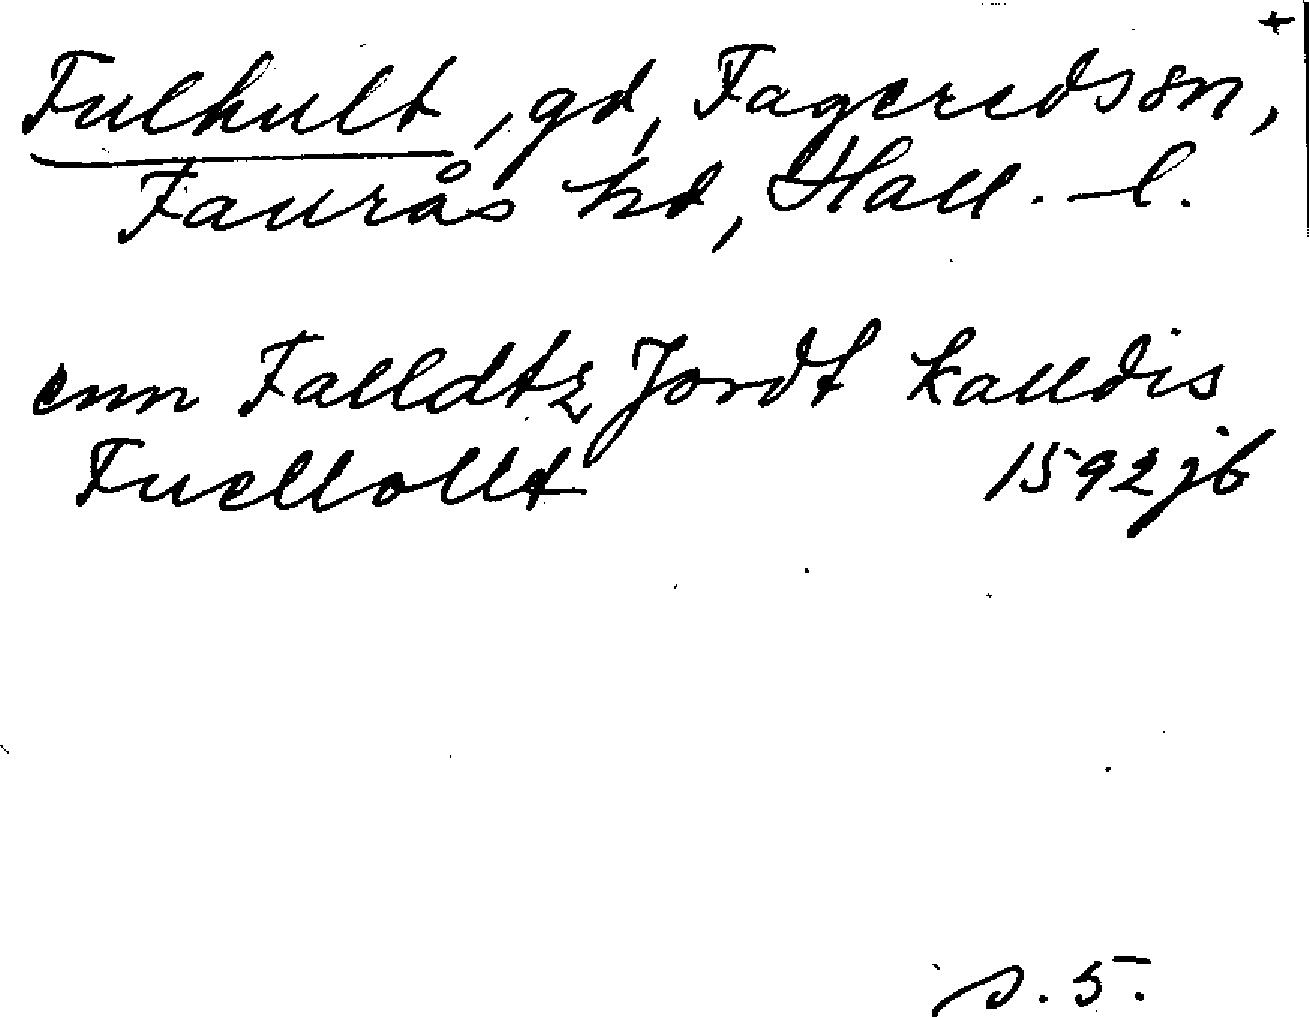 +
Fulhult, gd, Fagereds sn,
Faurås hd, Hall. l.
enn Falldtz Jordt kalldis
Fuellollt 1592 jb
s. 5.